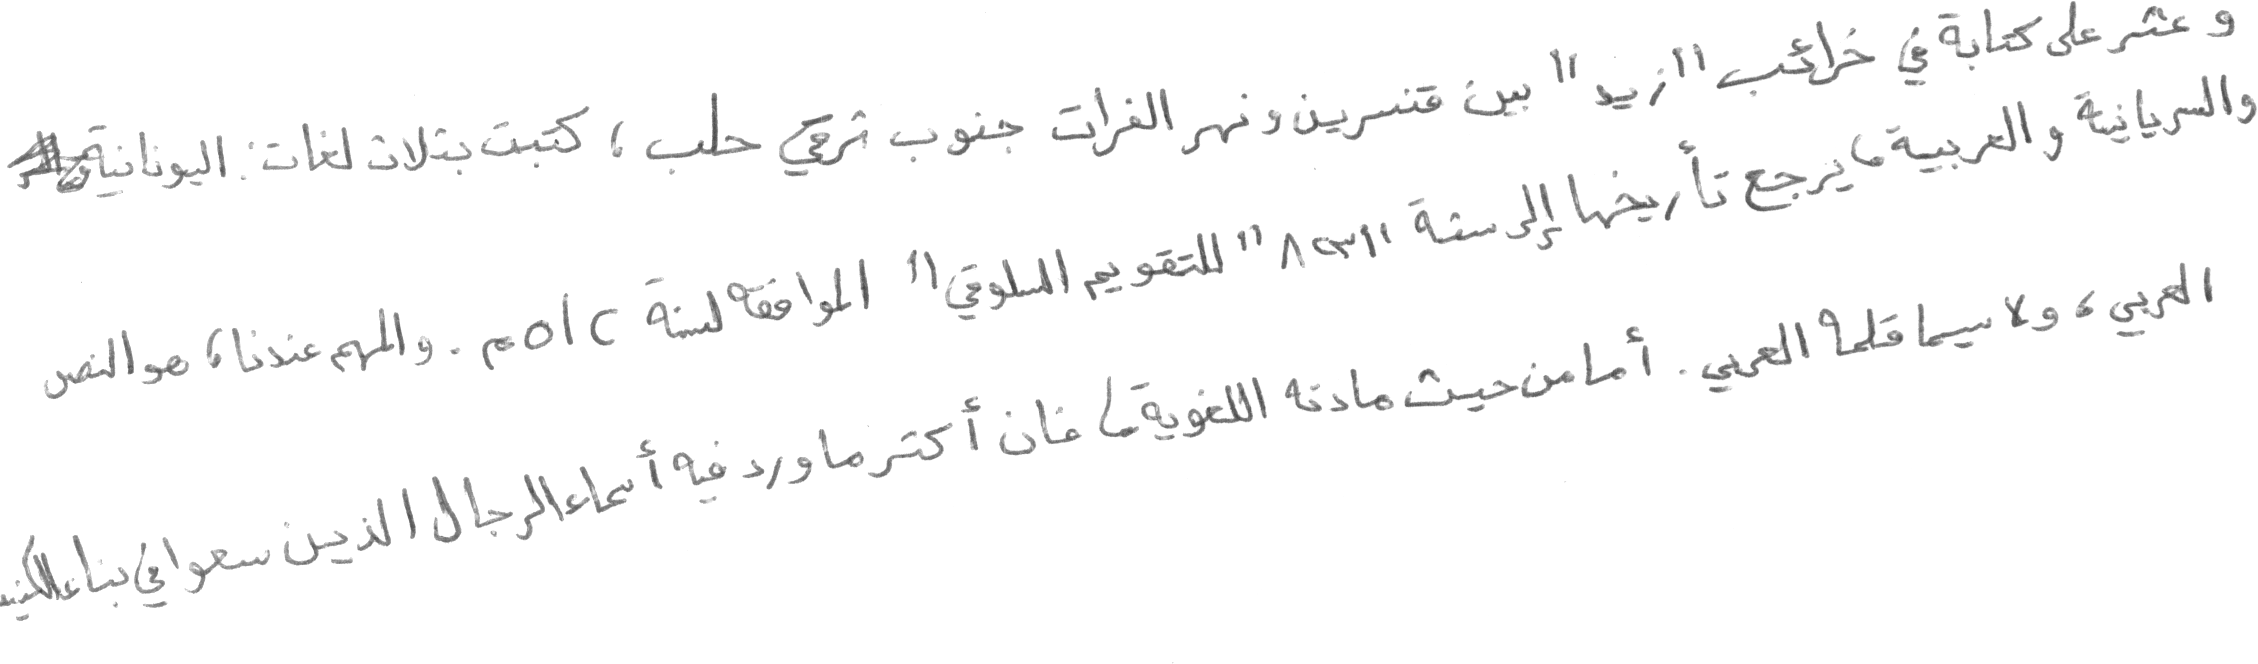 و عثر على كتابة في خرائب "زيد" بين قنسرين ونهر الفرات جنوب شرقي حلب ، كتبت بثلاث لغات: اليونانية
والسريانية والعربية، يرجع تأريخها إلى سنة "٨٢٣" للتقويم السلوقي" الموافقة لسنة ٥١٢م. والمهم عندنا، هو النص
العربي، ولا سيما قلمه العربي. أما من حيث مادته اللغوية، فان أكثر ما ورد فيه أسماء الرجال الذين سعوا في بناء